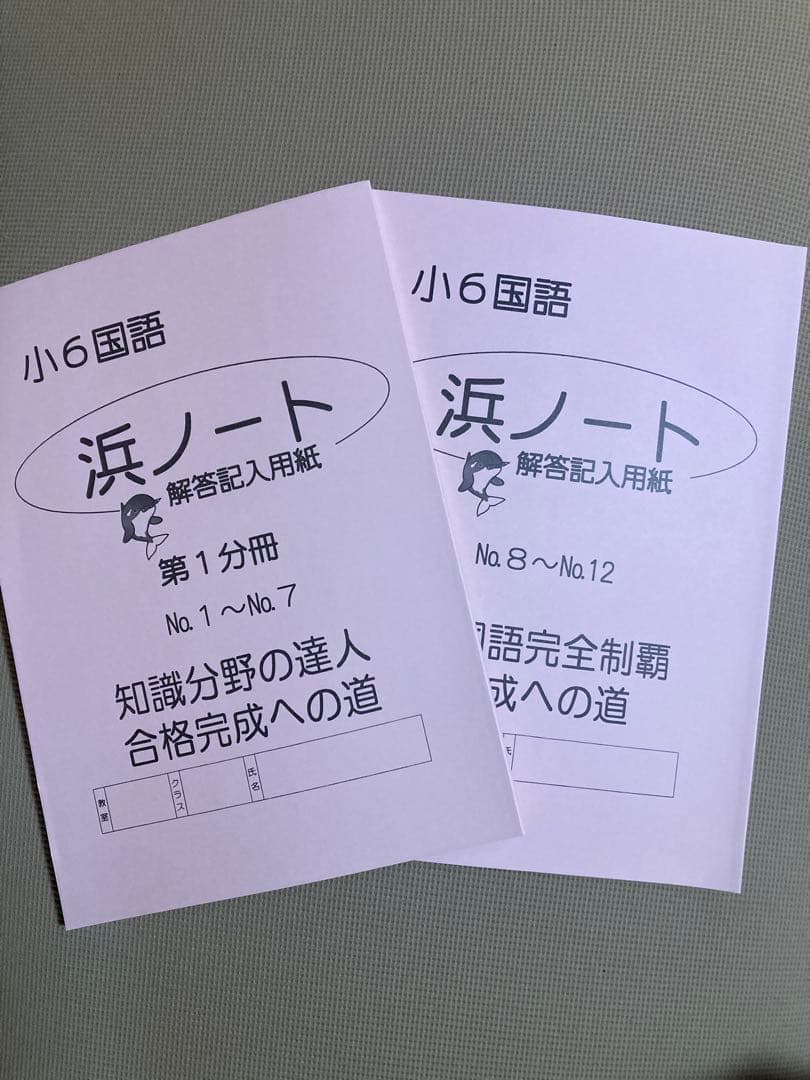 小６国語
浜ノート
解答記入用紙
第１分冊
№１～№７
知識分野の達人
合格完成への道
教室
クラス
氏名
小６国語
浜ノート
解答記入用紙
№８～№12
語完全制覇
成への道